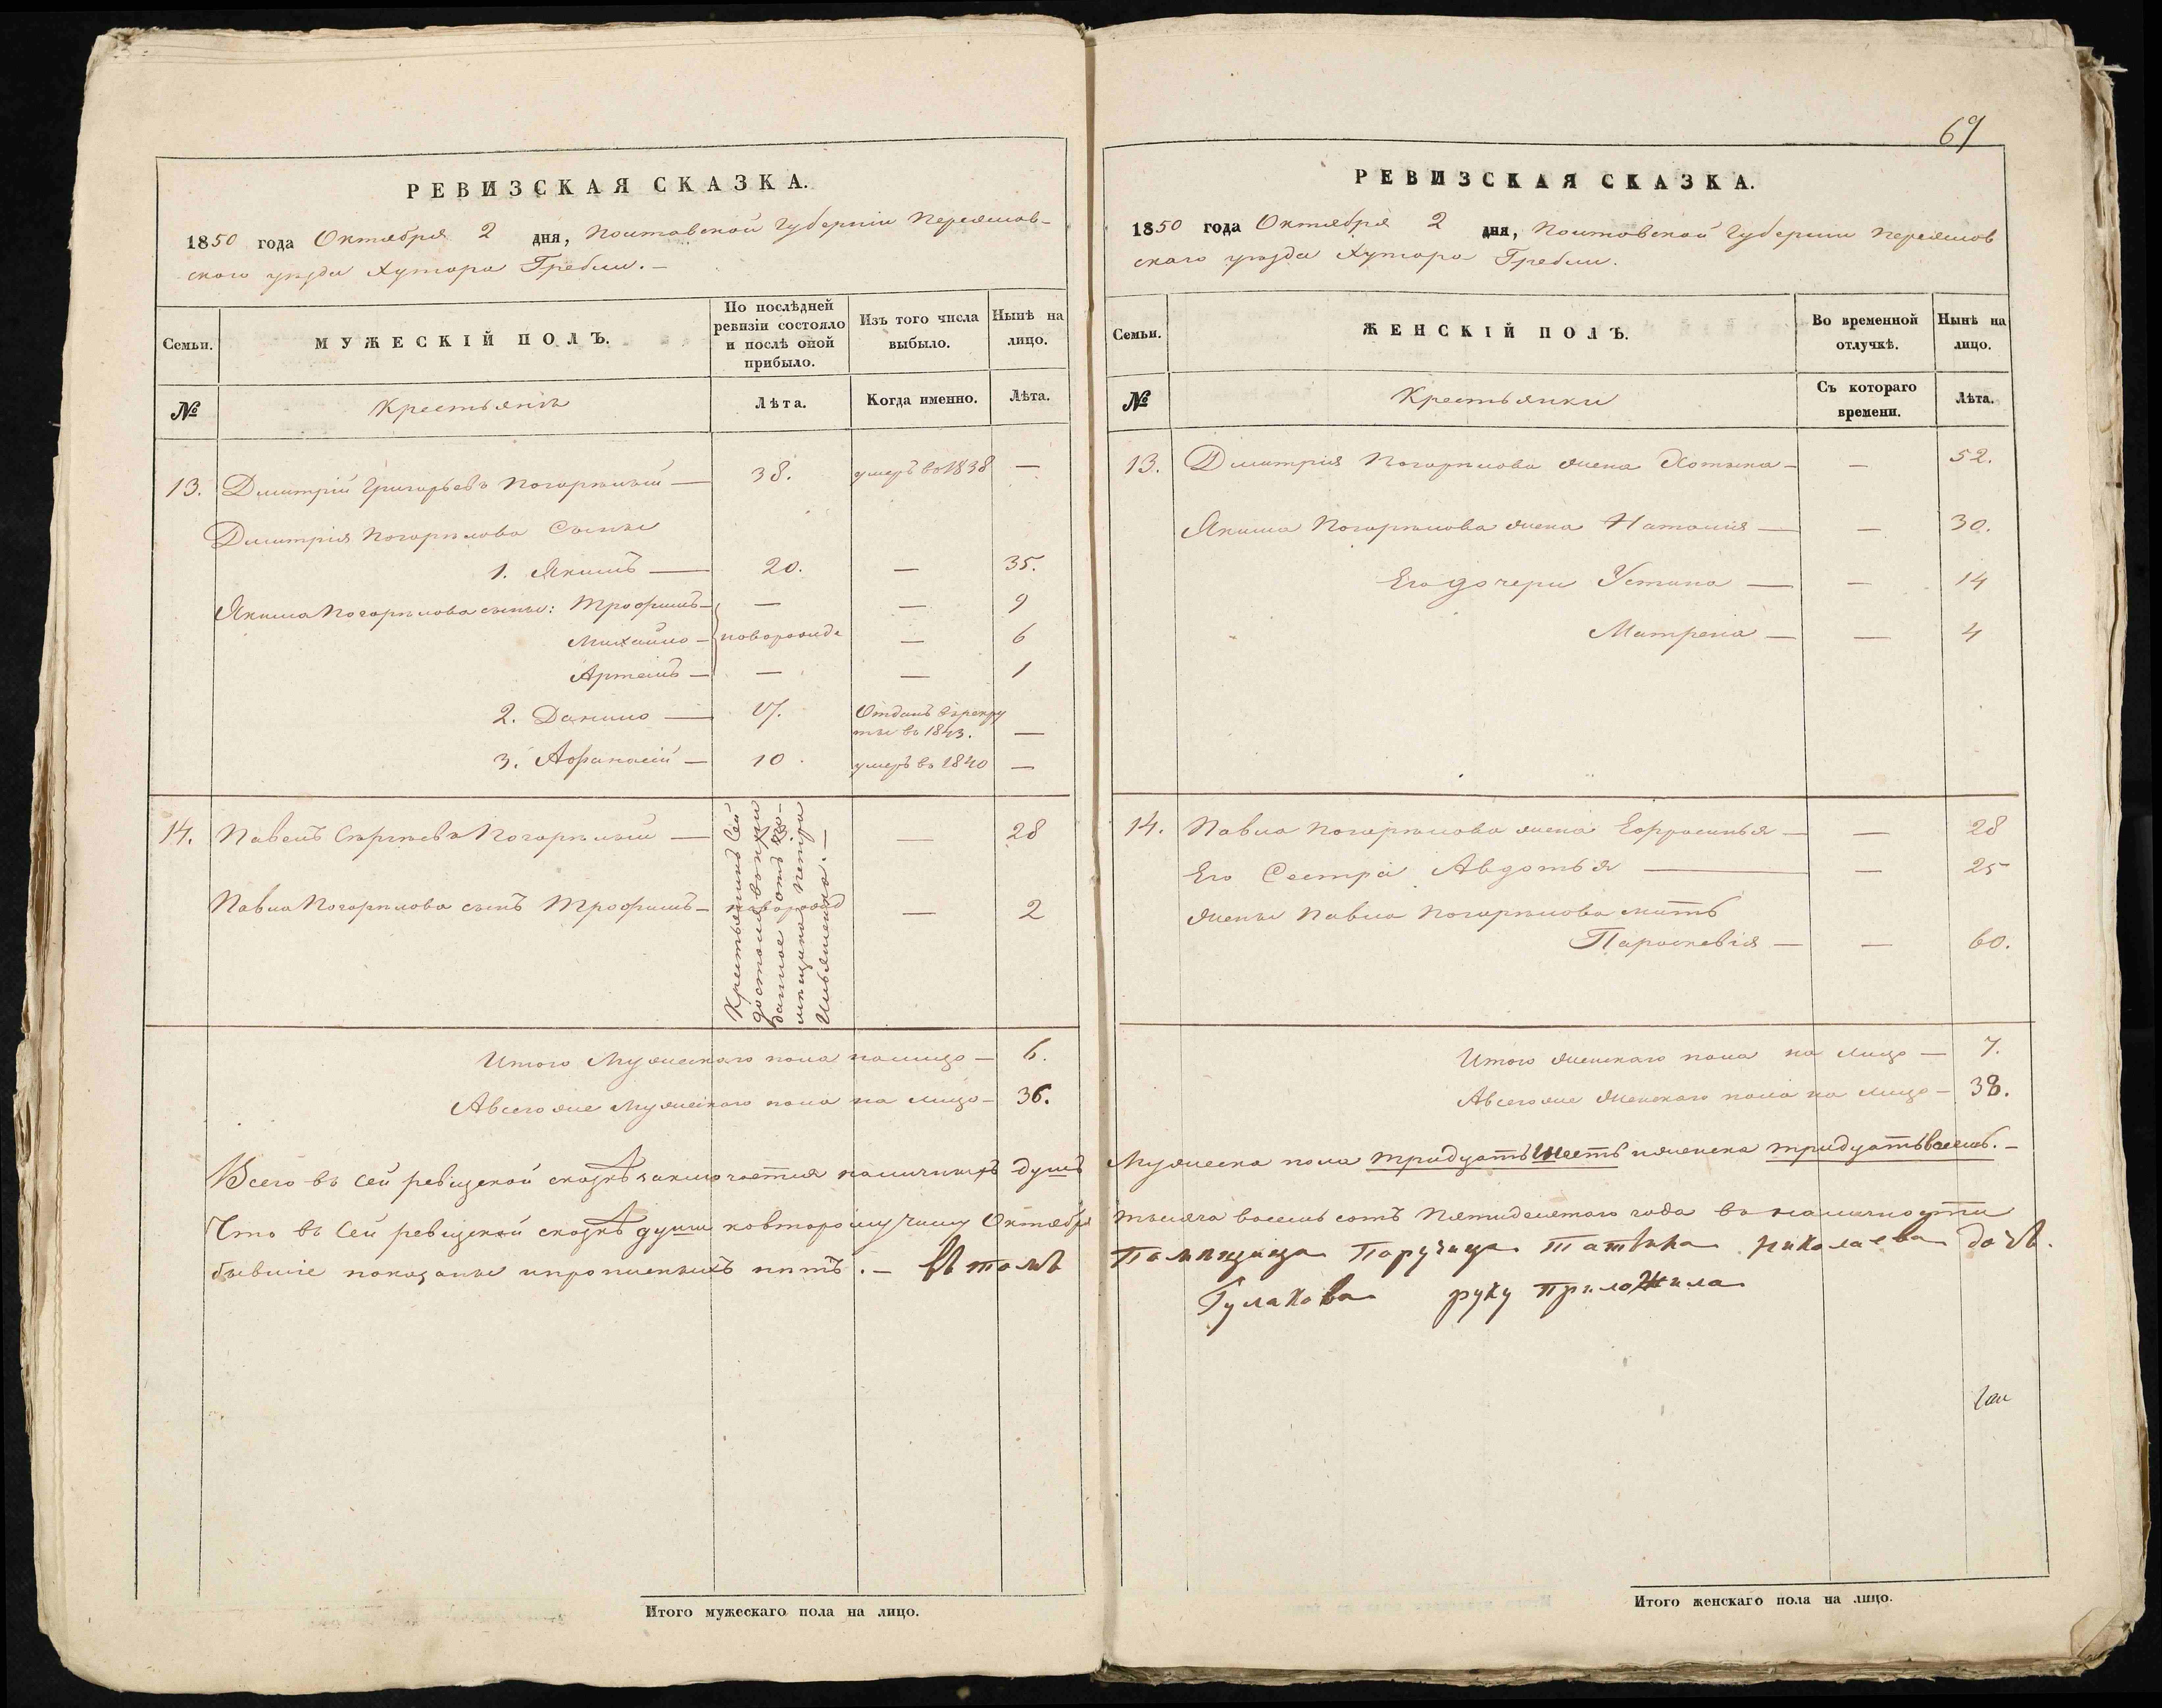 РЕВИЗСКАЯ СКАЗКА.
1850 года Октября 2 дня, Полтавской Губерніи Переяслов-
скаго уѣзда Хутора Гребли.—
Семьи.
МУЖЕСКІЙ ПОЛЪ.
По послѣдней ревизіи состояло и послѣ оной прибыло.
Изъ того числа выбыло.
Нынѣ на лицо.
№
Крестьянъ
Лѣта.
Когда именно.
Лѣта.
13. Дмитрій Григорьевъ Погорѣлый — 38. умеръ въ 1838 —
Дмитрія Погорѣлова Сыны
1. Якимъ — 20. — 35.
Якима Погорѣлова сыны: Трофимъ — — — 9
Михайло — новорожде — 6
Артемъ — — — 1
2. Данило — 17. Отданъ врекру
ты въ 1843. —
3. Афанасій — 10. умеръ въ 1840 —
14. Павелъ Сергѣевъ Погорѣлый — — 28
Павла Погорѣлова сынъ Трофимъ — новорожд — 2
Крестьянинъ Сей
достался
данное отъ по-
мѣщика Петра
Ильяшенка.—
Итого Мужескаго пола налицо — 6.
Авсего же Мужескаго пола на лицо — 36.
Всего въ сей ревизской сказкѣ заключается наличныхъ душъ
Что въ Сей ревизской сказкѣ души ковторому числу Октября
бывшіе показаны ипрописныхъ нѣтъ.— въ томъ
Итого мужескаго пола на лицо.
69
РЕВИЗСКАЯ СКАЗКА.
1850 года Октября 2 дня, Полтавской Губерніи Переяслов
скаго уѣзда Хутора Гребли.
Семьи.
ЖЕНСКІЙ ПОЛЪ.
Во временной отлучкѣ.
Нынѣ на лицо.
№
Крестьянки
Съ котораго времени.
Лѣта.
13. Дмитрія Погорѣлова жена — — 52.
Якима Погорѣлова жена Наталія — — 30.
Его дочери Устина — — 14
Матрена — — 4
14. Павла Погорѣлова жена Ефросинья — — 28
Его Сестра Авдотья — — 25
Жены Павла Погорѣлова мать
Параскевія — — 60.
Итого женскаго пола на лицо — 7.
Авсего же Женскаго пола на лицо — 38.
Мужеска пола тридцать шесть иженска тридцать восемь.—
тысяча восемь сотъ Пятидесятаго года въ наличности
Памѣщица Паручица Татьяна Николаева дочь.
Гулакова руку приложила
Итого женскаго пола на лицо.